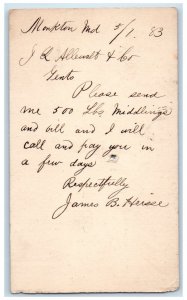 Monkton Md 5/1. 83
J K Allewalt & Co
Gents
Please send
me 500 Lbs Middlings
and bill and I will
call and pay you in
a few days
Respectfully
James B.